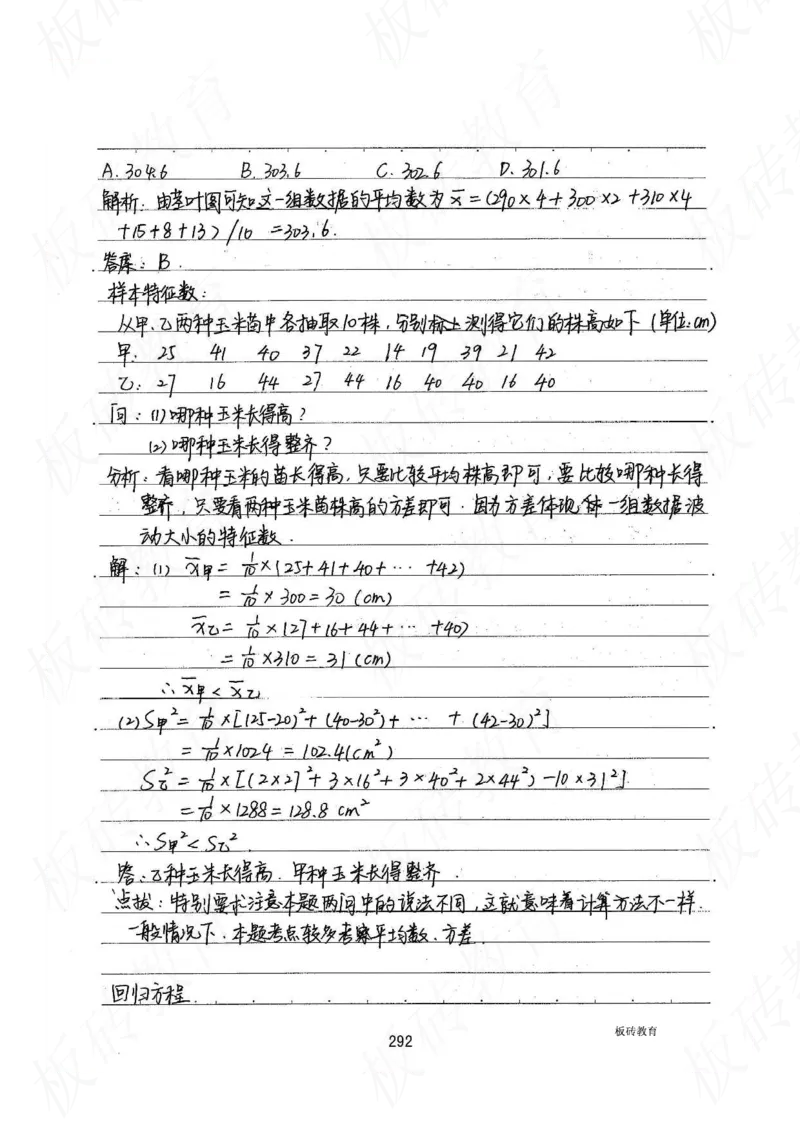 A. 304.6 B. 303.6 C. 302.6 D. 301.6
解析: 由茎叶图可知这一组数据的平均数为 x̄=(290×4+300×2+310×4
+15+8+13)/10 =303.6.
答案: B.
样本特征数:
从甲、乙两种玉米苗中各抽取10株,分别标上测得它们的株高如下(单位:cm)
甲: 25 41 40 37 22 14 19 39 21 42
乙: 27 16 44 27 44 16 40 40 16 40
问: (1)哪种玉米长得高?
(2)哪种玉米长得整齐?
分析: 看哪种玉米的苗长得高,只要比较平均株高即可,要比较哪种长得
整齐,只要看两种玉米苗株高的方差即可.因为方差体现 一组数据波
动大小的特征数.
解: (1) x̄甲= 1/10×(25+41+40+… +42)
= 1/10×300=30 (cm)
x̄乙= 1/10×(27+16+44+… +40)
= 1/10×310= 31 (cm)
∴ x̄甲< x̄乙
(2) S甲²= 1/10×[(25-20)²+(40-30²)+ … + (42-30)²]
= 1/10×1024 = 102.4(cm²)
S乙²= 1/10×[(2×27²+3×16²+3×40²+2×44²)-10×31²]
= 1/10×1288= 128.8 cm²
∴ S甲²< S乙².
答: 乙种玉米长得高.甲种玉米长得整齐.
点拨: 特别要求注意本题两问中的说法不同,这就意味着计算方法不一样.
一般情况下.本题考点较多考察平均数、方差.
回归方程.
292
板砖教育